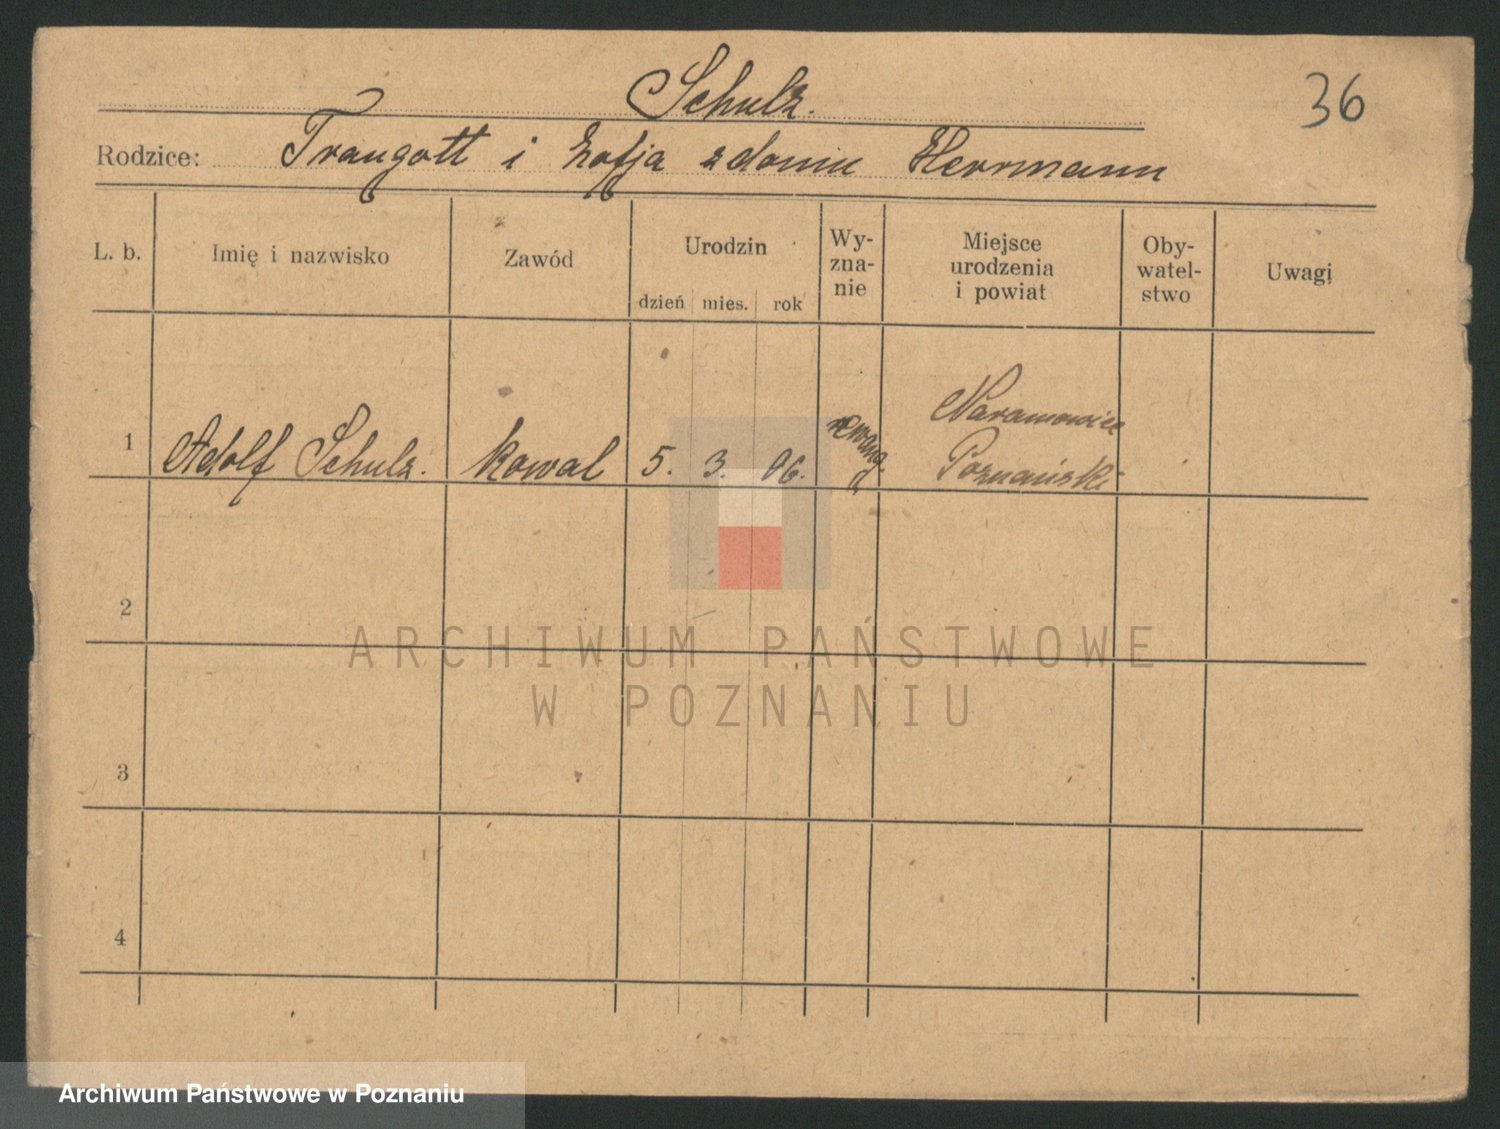 Schulz.
36
Rodzice: Traugott i Zofja z domu Herrmann
L. b.
Imię i nazwisko
Zawód
Urodzin
dzień mies. rok
Wy-
zna-
nie
Miejsce
urodzenia
i powiat
Oby-
watel-
stwo
Uwagi
1 Adolf Schulz. kowal 5. 3. 06. ewang. Naramowice
Poznański
2
3
4
ARCHIWUM PAŃSTWOWE
W POZNANIU
Archiwum Państwowe w Poznaniu